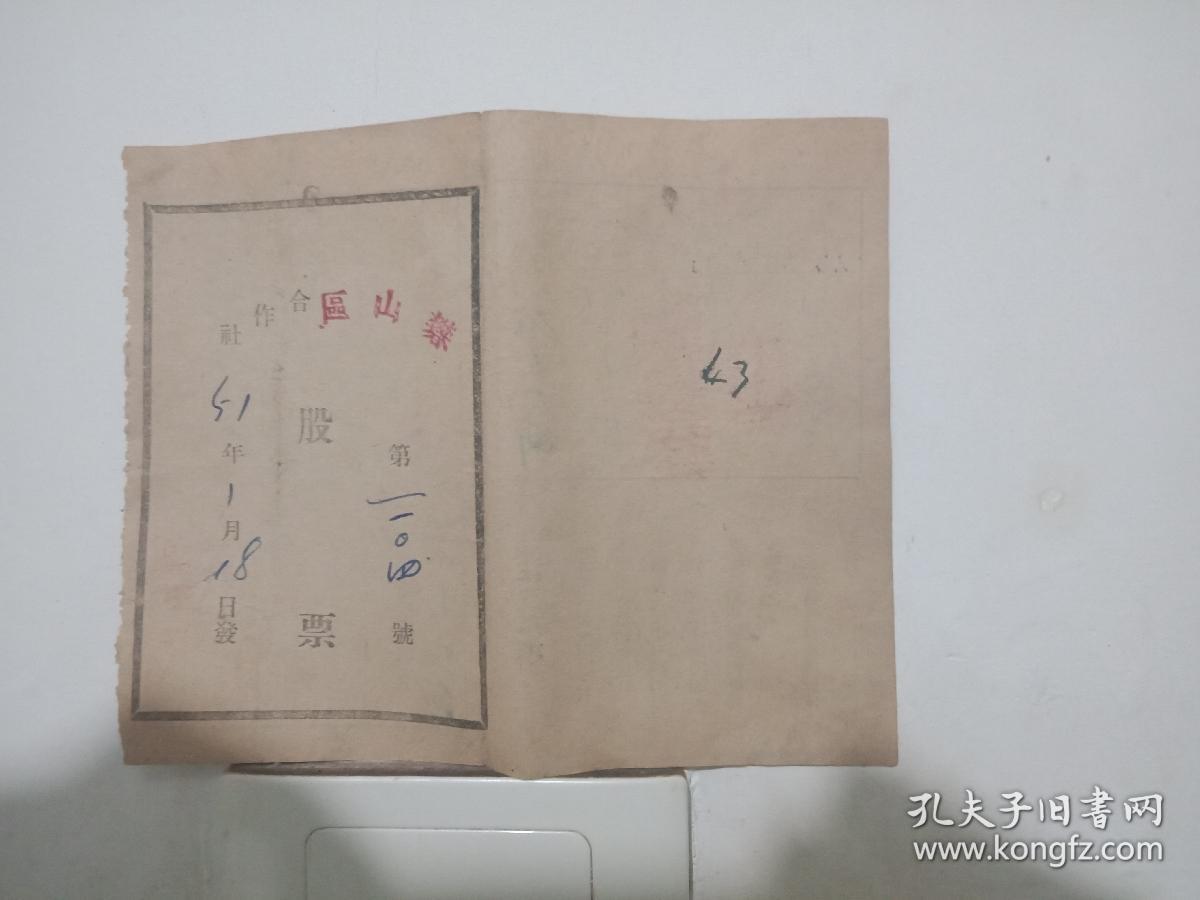 山區合作社
第一一0四號
股票
51年1月18日發
43
孔夫子旧书网
www.kongfz.com